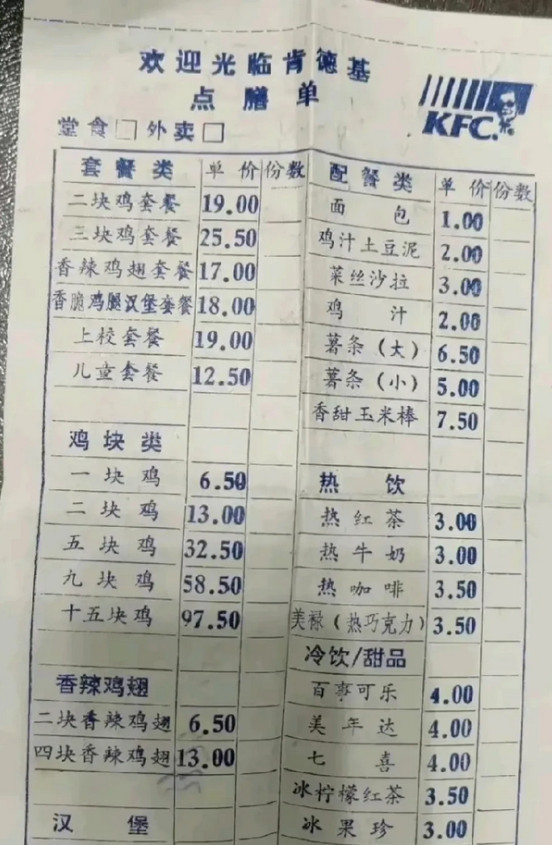 欢迎光临肯德基
点膳单
KFC.
堂食□ 外卖□
套餐类 单价 份数
二块鸡套餐 19.00
三块鸡套餐 25.50
香辣鸡翅套餐 17.00
香脆鸡腿汉堡套餐 18.00
上校套餐 19.00
儿童套餐 12.50
鸡块类
一块鸡 6.50
二块鸡 13.00
五块鸡 32.50
九块鸡 58.50
十五块鸡 97.50
香辣鸡翅
二块香辣鸡翅 6.50
四块香辣鸡翅 13.00
汉堡
配餐类 单价 份数
面包 1.00
鸡汁土豆泥 2.00
菜丝沙拉 3.00
鸡汁 2.00
薯条（大） 6.50
薯条（小） 5.00
香甜玉米棒 7.50
热饮
热红茶 3.00
热牛奶 3.00
热咖啡 3.50
美禄（热巧克力） 3.50
冷饮/甜品
百事可乐 4.00
美年达 4.00
七喜 4.00
冰柠檬红茶 3.50
冰果珍 3.00